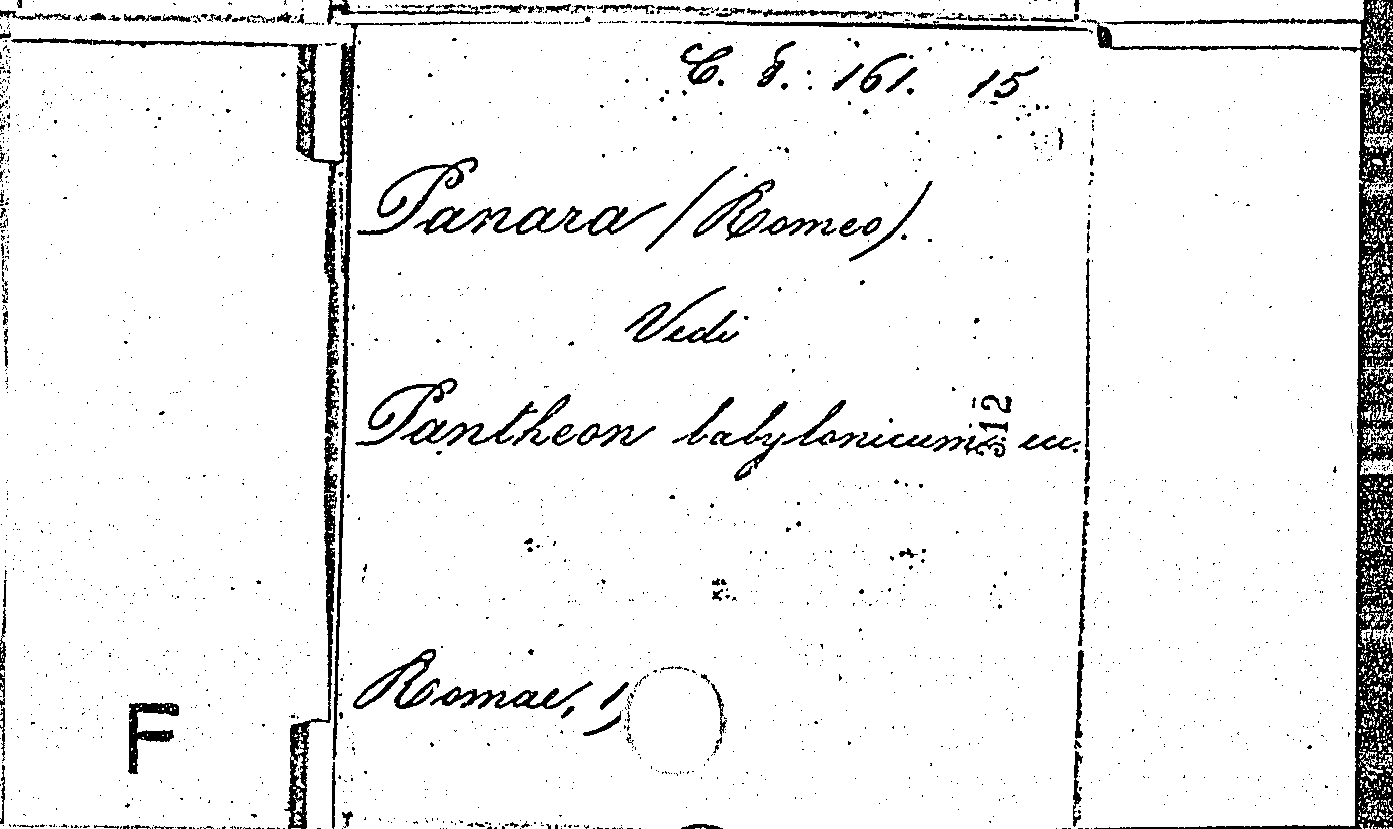 C. S. 161. 15
Panara (Romeo).
Vedi
Pantheon babylonicum ecc.
312
Romae, 19
F